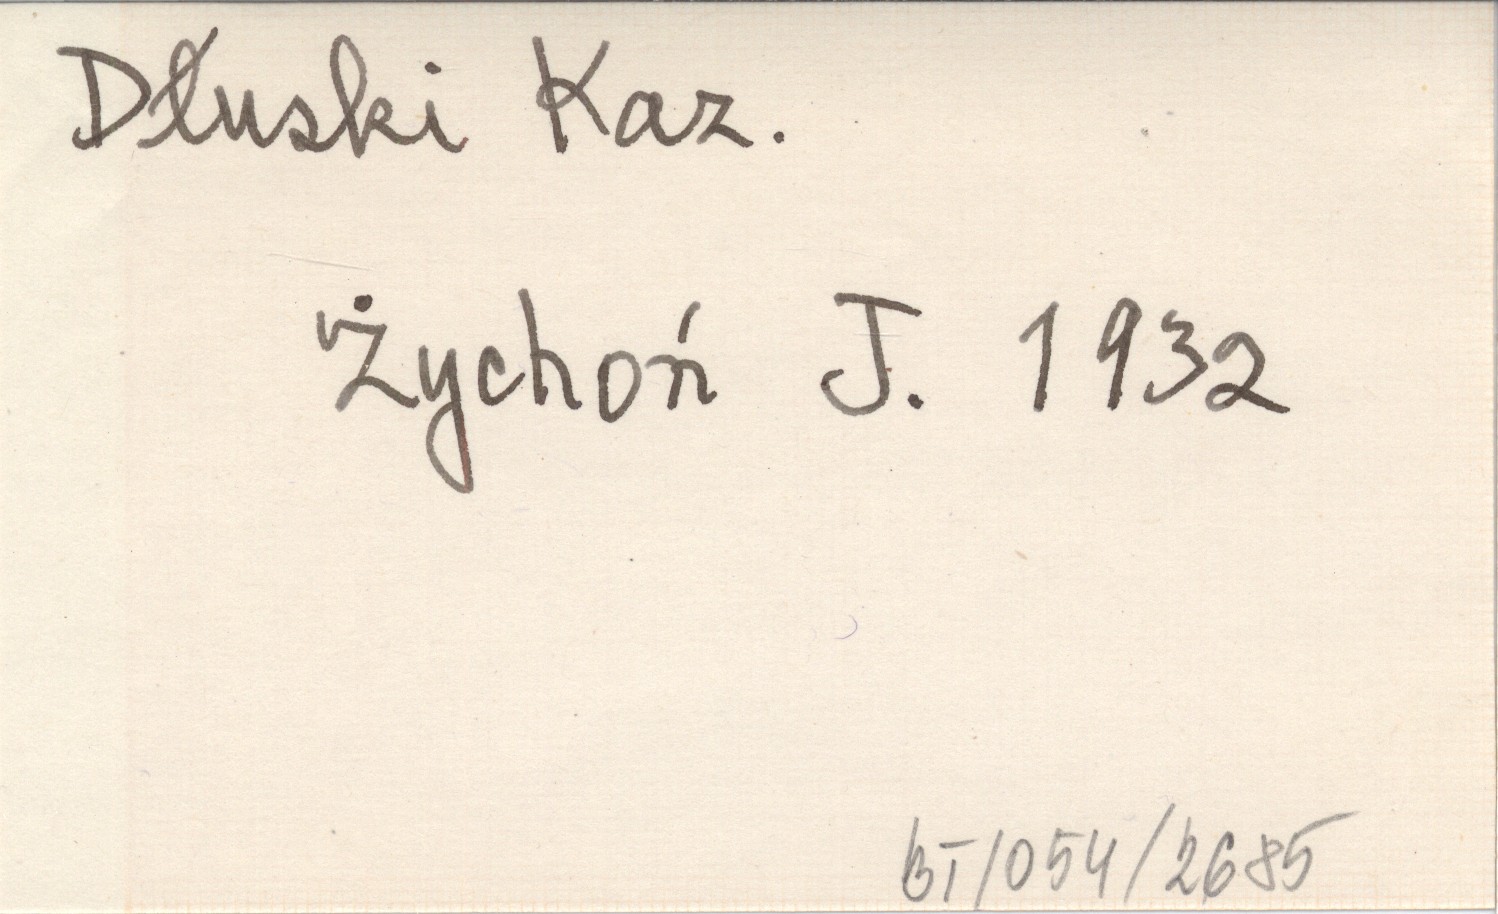 Dłuski Kaz.
Żychoń J. 1932
BT/054/2685